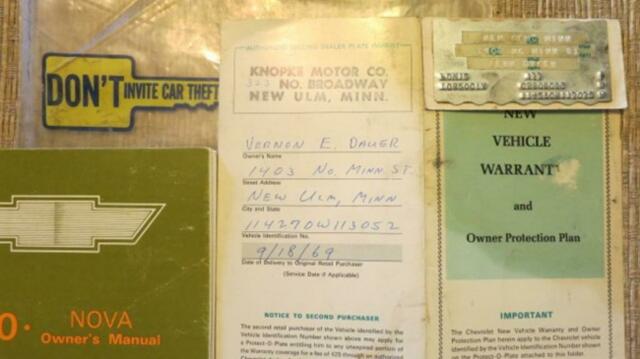 DON'T INVITE CAR THEFT
AUTHORIZED SELLING DEALER PLATE IMPRINT
KNOPKE MOTOR CO.
323 NO. BROADWAY
NEW ULM, MINN.
VERNON E. DAUER
Owner's Name
1403 NO. MINN. ST.
Street Address
NEW ULM, MINN
City and State
114270W113052
Vehicle Identification No.
9/18/69
Date of Delivery to Original Retail Purchaser
(Service Date if Applicable)
NOTICE TO SECOND PURCHASER
The second retail purchaser of the Vehicle identified by the
Vehicle Identification Number shown above may apply for
a Protect-O-Plate entitling him to any unexpired portion of
the Warranty coverage for a fee of $25 through an authorized
NEW
VEHICLE
WARRANT
and
Owner Protection Plan
IMPORTANT
The Chevrolet New Vehicle Warranty and Owner
Protection Plan herein apply to the Chevrolet vehicle
identified by the Vehicle Identification Number shown
on the Protect-O-Plate attached to this folder.
0.
NOVA
Owner's Manual